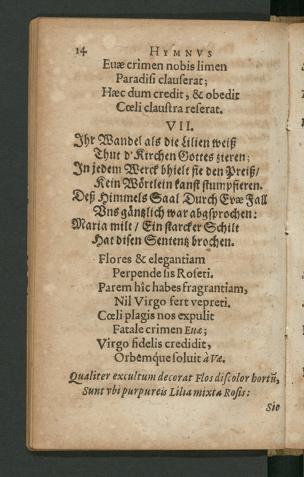 14 HYMNVS
Euæ crimen nobis limen
Paradisi clauserat;
Hæc dum credit, & obedit
Cœli claustra reserat.
VII.
Ihr Wandel als die Lilien weiß
Thut d'Kirchen Gottes zieren;
In jedem Werck bhielt sie den Preiß/
Kein Wörtlein kanst stumpfieren.
Deß Himmels Saal Durch Evæ Fall
Vns gäntzlich war abgsprochen:
Maria milt / Ein starcker Schilt
Hat disen Sententz brochen.
Flores & elegantiam
Perpende sis Roseti.
Parem hîc habes fragrantiam,
Nil Virgo fert vepreti.
Cœli plagis nos expulit
Fatale crimen Euæ;
Virgo fidelis credidit,
Orbémque soluit à Væ.
Qualiter excultum decorat Flos discolor hortũ,
Sunt vbi purpureis Lilia mixta Rosis:
Sic